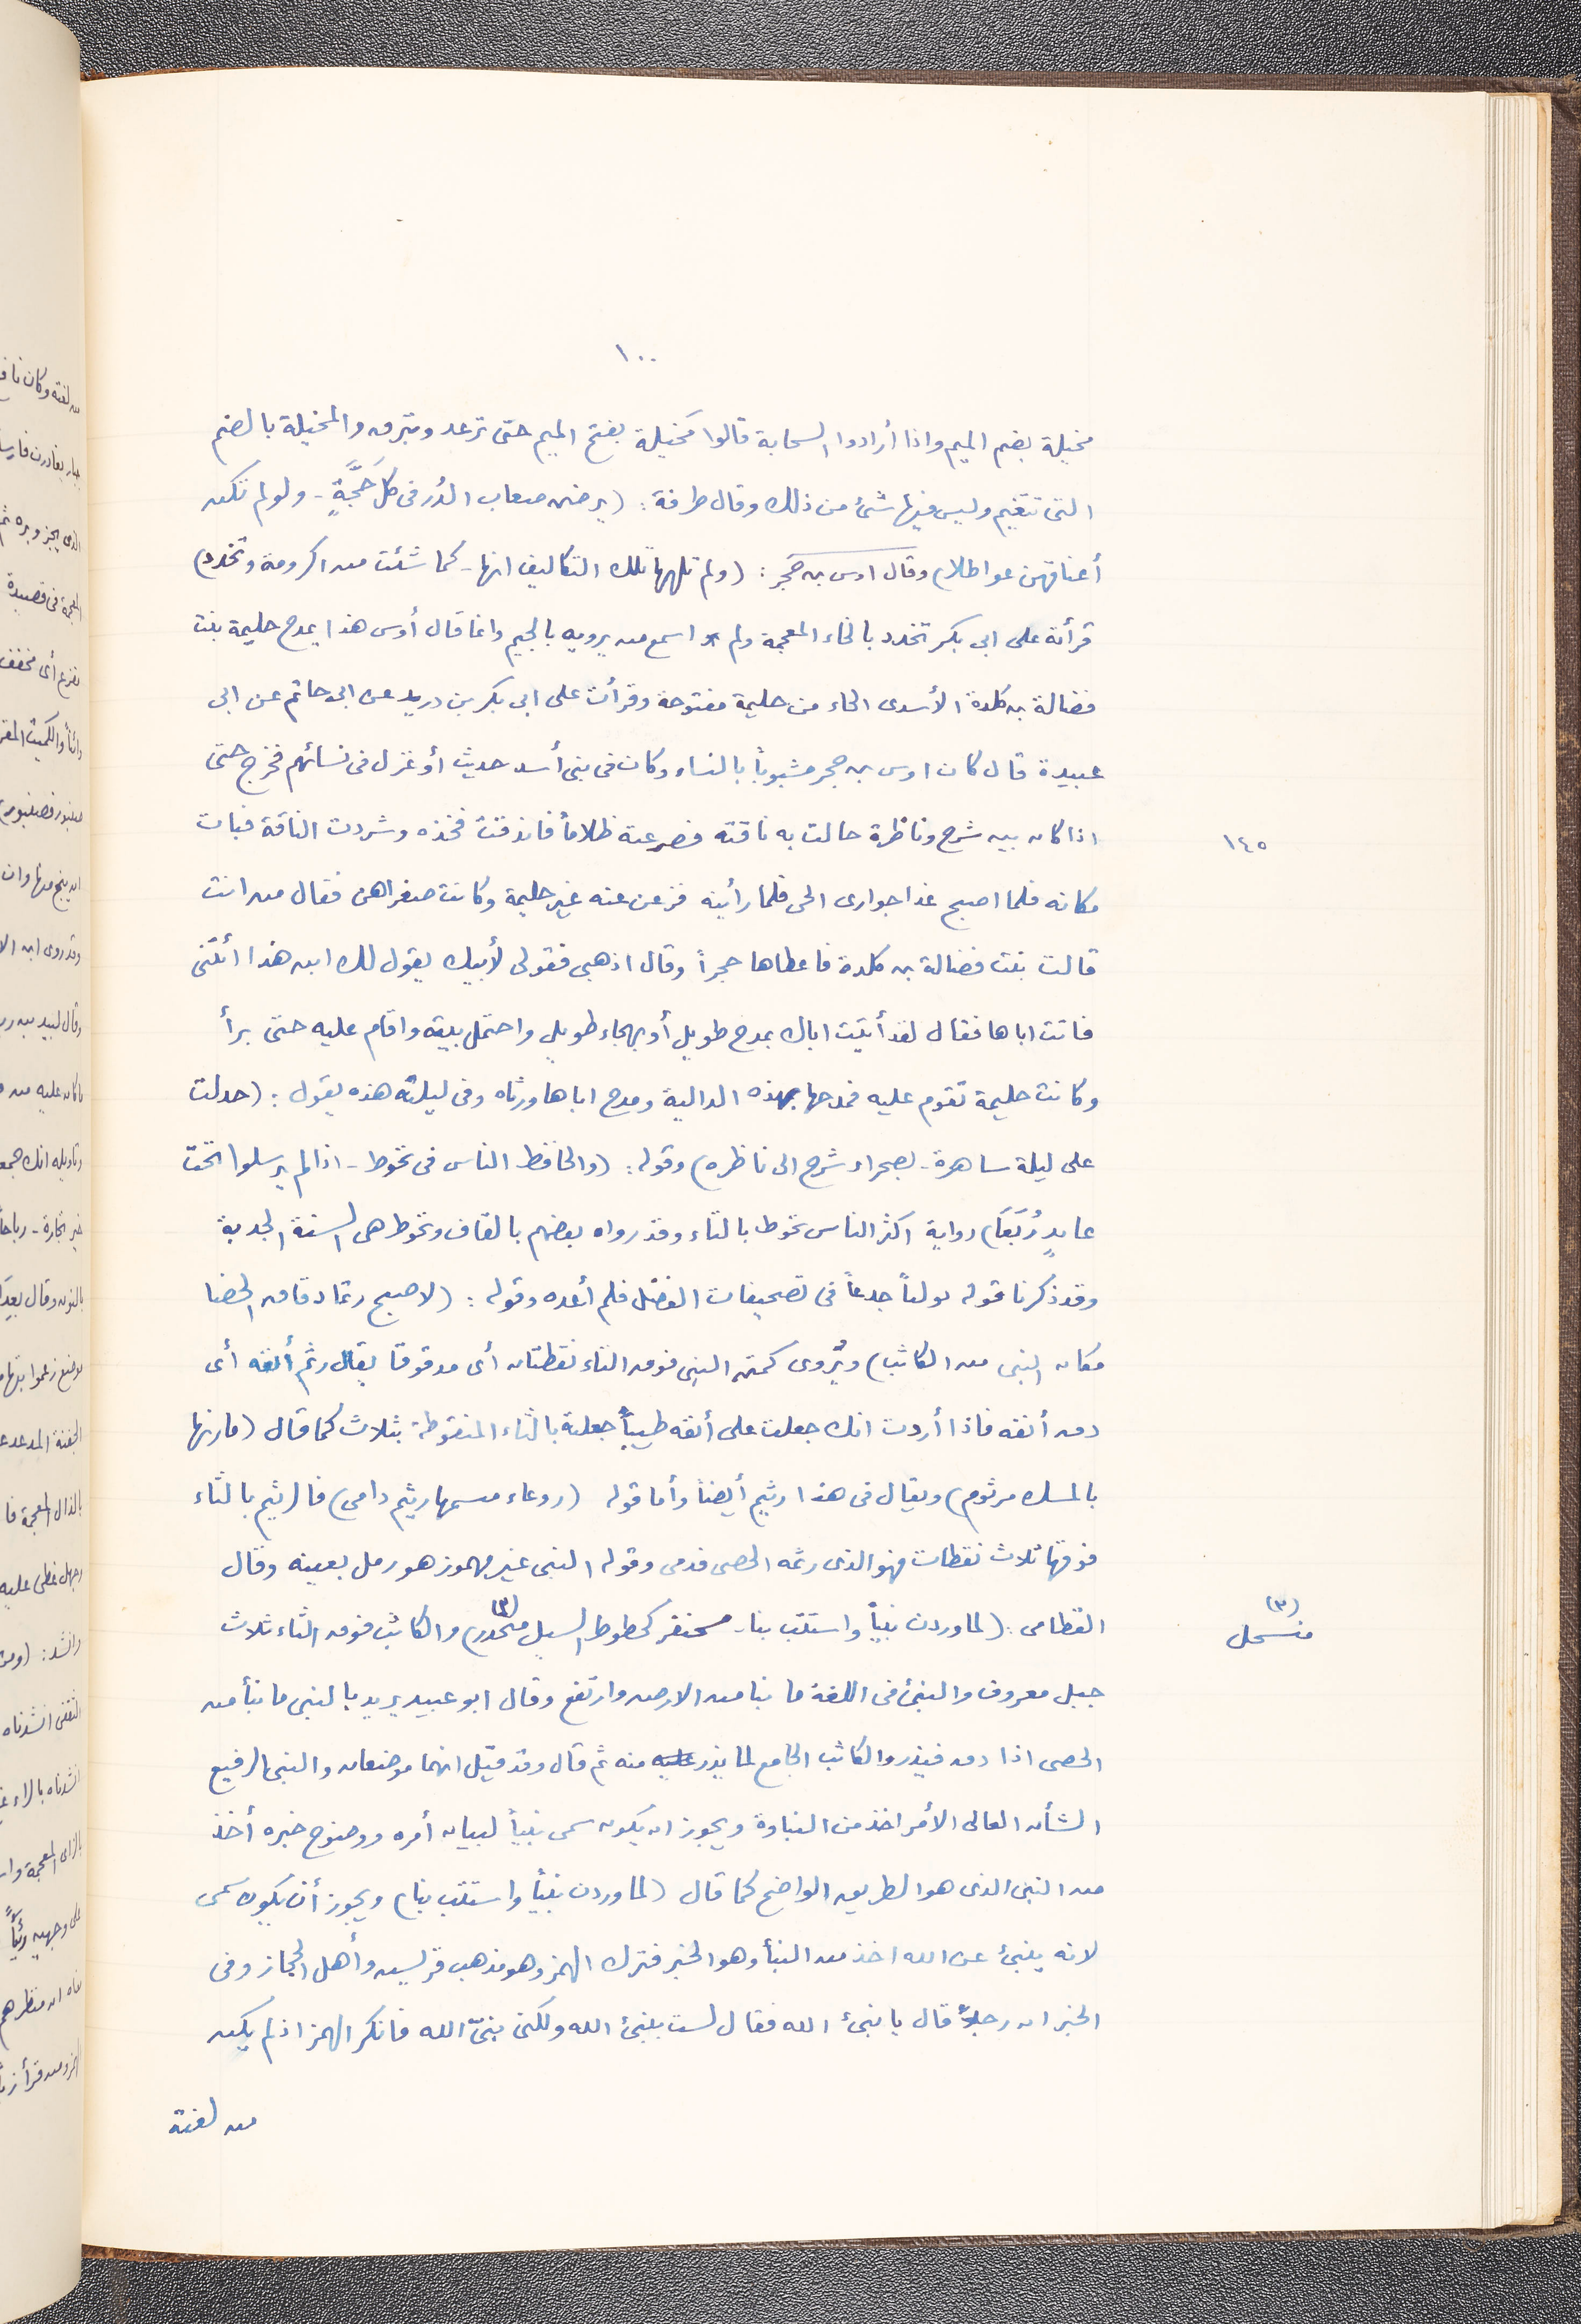 ١٠٠
مخيلة بضم الميم واذا أرادوا السحابة قالوا مَخيلة بفتح الميم حتى ترعد وتبرق والمخيلة بالضم
التى تتغيم وليس فيها شئ من ذلك وقال طرفة : (يرضن صعاب الدُر فى كل حَجَّةٍ - ولو لم تكن
أعناقهن عواطلا) وقال اوس بن حَجر : (ولم تلهها تلك التكاليف انها - كما شئت من اكرومة وتخدد)
قرأته على ابى بكر تخدد بالخاء المعجمة ولم اسمع من يرويه بالجيم وانما قال أوس هذا يمدح حليمة بنت
فضالة بن كلدة الأسدى الحاء من حليمة مفتوحة وقرأت على ابى بكر بن دريد عن ابى حاتم عن ابى
عبيدة قال كان اوس بن حجر مشبوباً بالنساء وكان فى بنى أسد حديث أو غزل فى نسائهم فخرج حتى
اذا كان بين شرج وناظرة حالت به ناقته فصرعته ظلاماً فاندقت فخذه وشردت الناقة فبات
١٤٥
مكانه فلما اصبح غدا جوارى الحى فلما رأينه فزعن عنه غير حليمة وكانت صغراهن فقال من انت
قالت بنت فضالة بن كلدة فاعطاها حجراً وقال اذهبى فقولى لأبيك يقول لك ابن هذا ائتنى
فاتت اباها فقال لقد أتيت اباك بمدح طويل أو بهجاء طويل واحتمل بيته واقام عليه حتى برأ
وكانت حليمة تقوم عليه فمدحها بهذه الدالية ومدح اباها ورثاه وفى ليلته هذه يقول : (جدلت
على ليلة ساهرة - بصحراء شرج الى ناظره) وقوله : (والحافظ الناس فى تحوط - اذا لم يرسلوا تحت
عايذٍ رُبَعَا) رواية اكثر الناس تحوط بالتاء وقد رواه بعضهم بالقاف وتحوط هى السنة الجدبة
وقد ذكرنا قوله تولباً جدعاً فى تصحيفات المفضل فلم أعده وقوله : (لاصبح رتما دقاق الحصا
مكان النبى من الكاثب) ويُروى كمتن النبى فوق التاء نقطتان أى مدقوقا يقال رتم أنفه أى
دق أنفه فاذا أردت انك جعلت على أنفه طيباً جعلته بالثاء المنقوطة بثلاث كما قال (مارنها
بالمسك مرثوم) ويقال فى هذا رثيم أيضاً وأما قوله (روعاء مسمها رثيم دامى) فالرثيم بالثاء
فوقها ثلاث نقطات فهو الذى رثمه الحصى فدمى وقوله النبى غير مهموز هو رمل بعينه وقال
القطامى : (لما وردن نبيّاً واستتب بنا - مسحنفر كخطوط السيل منحدر) (٣) والكاثب فوق الثاء ثلاث
(٣)
منسحل
جبل معروف والنبئ فى اللغة ما نبا من الارض وارتفع وقال ابو عبيد يريد بالنبى ما نبأ من
الحصى اذا دق فيندر والكاثب الجامع لما يندر منه ثم قال وقد قيل انهما موضعان والنبى الرفيع
الشأن العالى الأمر اخذ من النباوة ويجوز ان يكون سمى نبياً لبيان أمره ووضوح خبره أخذ
من النبى الذى هو الطريق الواضح كما قال (لما وردن نبيّاً واستتب بنا) ويجوز أن يكون سمى
لانه ينبئ عن الله اخذ من النبأ وهو الخبر فترك الهمز وهو مذهب قريش وأهل الحجاز وفى
الخبر ان رجلاً قال يا نبئ الله فقال لست بنبئ الله ولكن نبىّ الله فانكر الهمز اذ لم يكن
من لغته